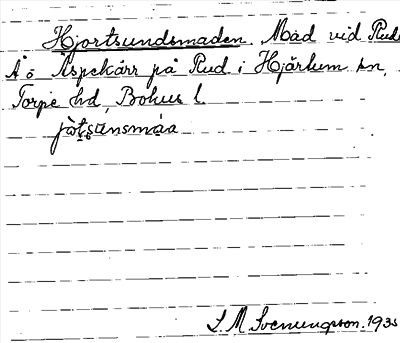 Hjortsundsmaden. Mad vid Rud
Å ö Äspekärr på Rud i Hjärtum sn,
Torpe hd, Bohus l.
jo̱tsunsmáa
S. M Svenungsson. 1935